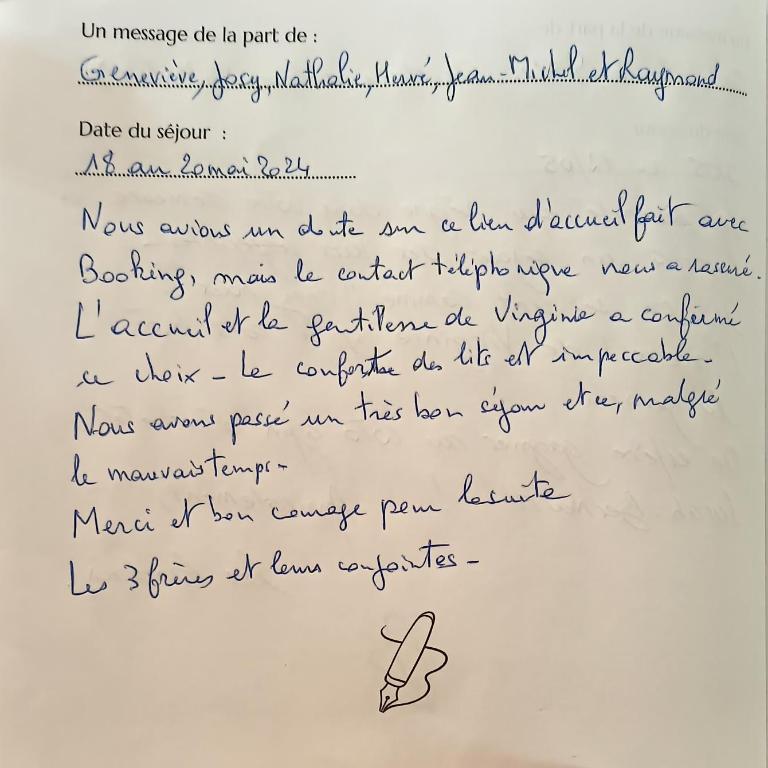 Un message de la part de :
Geneviève, Josy, Nathalie, Hervé, Jean-Michel et Raymond
Date du séjour :
18 au 20 mai 2024
Nous avions un doute sur ce lieu d'accueil fait avec
Booking, mais le contact téléphonique nous a rassuré.
L'accueil et la gentillesse de Virginie a confirmé
ce choix - Le confort des lits est impeccable -
Nous avons passé un très bon séjour et ce, malgré
le mauvais temps -
Merci et bon courage pour la suite
Les 3 frères et leurs conjointes -